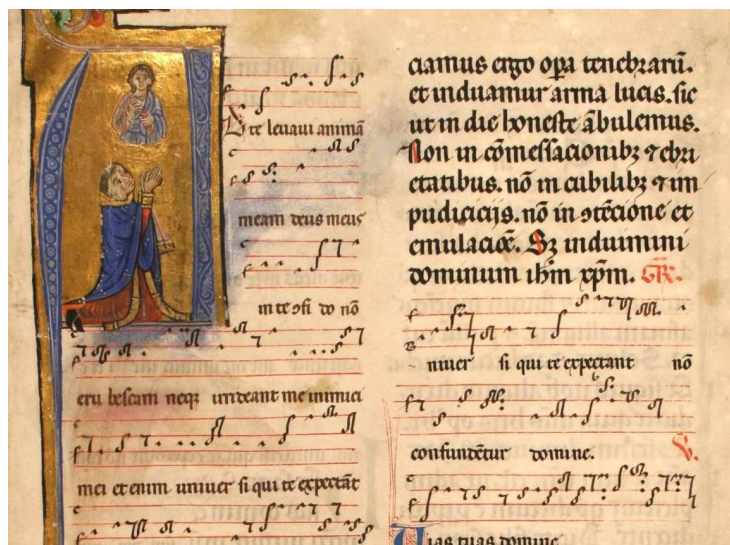 D te leuaui animā
meam deus meus
in te ꝯfi do nō
eru bescam neqꝫ irrideant me inimici
mei et enim uniuer si qui te expectāt
ciamus ergo oꝑa tenebrarū.
et induamur arma lucis. sic
ut in die honeste ābulemus.
Non in cōmessacionibꝫ ⁊ ebri
etatibus. nō in cubilibꝫ ⁊ im
pudicicijs. nō in ꝯtēcione et
emulacōe. Sꝫ induimini
dominum ihm̄ xp̄m. GR.
niuer si qui te expectant nō
confundētur domine. V.
Uias tuas domine